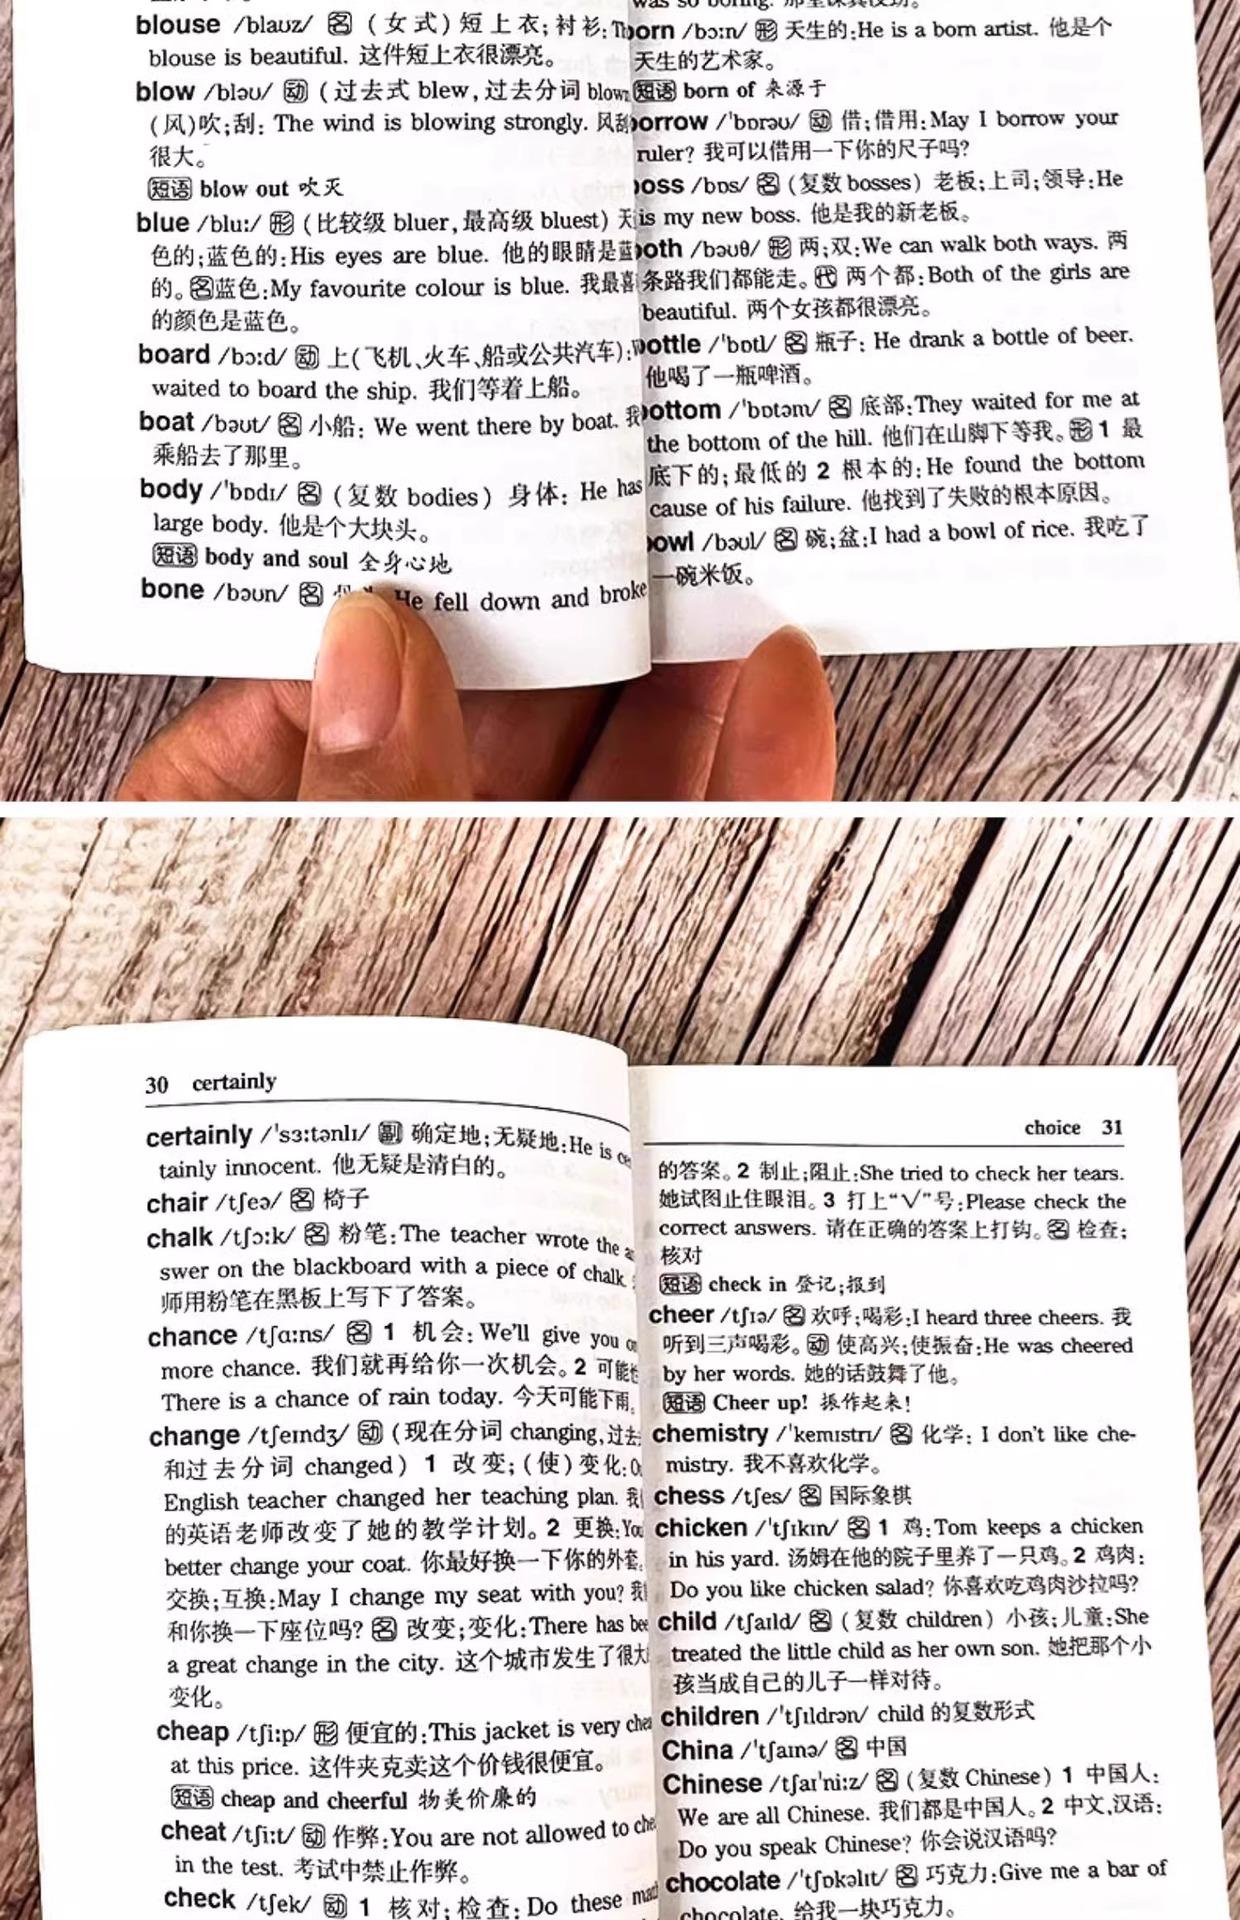 blouse /blaʊz/ 名 (女式)短上衣;衬衫:
blouse is beautiful. 这件短上衣很漂亮。
blow /bləʊ/ 动 (过去式 blew,过去分词 blown
(风)吹;刮: The wind is blowing strongly. 风刮
很大。
短语 blow out 吹灭
blue /blu:/ 形 (比较级 bluer,最高级 bluest) 天
色的;蓝色的:His eyes are blue. 他的眼睛是蓝
的。名蓝色:My favourite colour is blue. 我最喜
的颜色是蓝色。
board /bɔ:d/ 动 上(飞机、火车、船或公共汽车):
waited to board the ship. 我们等着上船。
boat /bəʊt/ 名 小船: We went there by boat. 我
乘船去了那里。
body /'bɒdɪ/ 名 (复数 bodies) 身体: He has
large body. 他是个大块头。
短语 body and soul 全身心地
bone /bəʊn/ 名 He fell down and broke
was so boring.
born /bɔ:n/ 形 天生的:He is a born artist. 他是个
天生的艺术家。
短语 born of 来源于
borrow /'bɒrəʊ/ 动 借;借用:May I borrow your
ruler? 我可以借用一下你的尺子吗?
boss /bɒs/ 名 (复数 bosses) 老板;上司;领导:He
is my new boss. 他是我的新老板。
both /bəʊθ/ 形 两;双:We can walk both ways. 两
条路我们都能走。代 两个都:Both of the girls are
beautiful. 两个女孩都很漂亮。
bottle /'bɒtl/ 名 瓶子: He drank a bottle of beer.
他喝了一瓶啤酒。
bottom /'bɒtəm/ 名 底部:They waited for me at
the bottom of the hill. 他们在山脚下等我。形 1 最
底下的;最低的 2 根本的:He found the bottom
cause of his failure. 他找到了失败的根本原因。
bowl /bəʊl/ 名 碗;盆:I had a bowl of rice. 我吃了
一碗米饭。
30 certainly
certainly /'sɜ:tənlɪ/ 副 确定地;无疑地:He is ce
tainly innocent. 他无疑是清白的。
chair /tʃeə/ 名 椅子
chalk /tʃɔ:k/ 名 粉笔:The teacher wrote the a
swer on the blackboard with a piece of chalk.
师用粉笔在黑板上写下了答案。
chance /tʃɑ:ns/ 名 1 机会:We'll give you o
more chance. 我们就再给你一次机会。2 可能
There is a chance of rain today. 今天可能下雨。
change /tʃeɪndʒ/ 动 (现在分词 changing,过去
和过去分词 changed) 1 改变;(使)变化:
English teacher changed her teaching plan. 我
的英语老师改变了她的教学计划。2 更换:You
better change your coat. 你最好换一下你的外套。
交换;互换:May I change my seat with you? 我
和你换一下座位吗? 名 改变;变化:There has bee
a great change in the city. 这个城市发生了很大
变化。
cheap /tʃi:p/ 形 便宜的:This jacket is very chea
at this price. 这件夹克卖这个价钱很便宜。
短语 cheap and cheerful 物美价廉的
cheat /tʃi:t/ 动 作弊:You are not allowed to che
in the test. 考试中禁止作弊。
check /tʃek/ 动 1 核对;检查:Do these mat
choice 31
的答案。2 制止;阻止:She tried to check her tears.
她试图止住眼泪。3 打上“√”号:Please check the
correct answers. 请在正确的答案上打钩。名 检查;
核对
短语 check in 登记;报到
cheer /tʃɪə/ 名 欢呼;喝彩:I heard three cheers. 我
听到三声喝彩。动 使高兴;使振奋:He was cheered
by her words. 她的话鼓舞了他。
短语 Cheer up! 振作起来!
chemistry /'kemɪstrɪ/ 名 化学: I don't like che-
mistry. 我不喜欢化学。
chess /tʃes/ 名 国际象棋
chicken /'tʃɪkɪn/ 名 1 鸡:Tom keeps a chicken
in his yard. 汤姆在他的院子里养了一只鸡。2 鸡肉:
Do you like chicken salad? 你喜欢吃鸡肉沙拉吗?
child /tʃaɪld/ 名 (复数 children) 小孩;儿童:She
treated the little child as her own son. 她把那个小
孩当成自己的儿子一样对待。
children /'tʃɪldrən/ child 的复数形式
China /'tʃaɪnə/ 名 中国
Chinese /tʃaɪ'ni:z/ 名 (复数 Chinese) 1 中国人:
We are all Chinese. 我们都是中国人。2 中文,汉语:
Do you speak Chinese? 你会说汉语吗?
chocolate /'tʃɒkəlɪt/ 名 巧克力:Give me a bar of
chocolate. 给我一块巧克力。